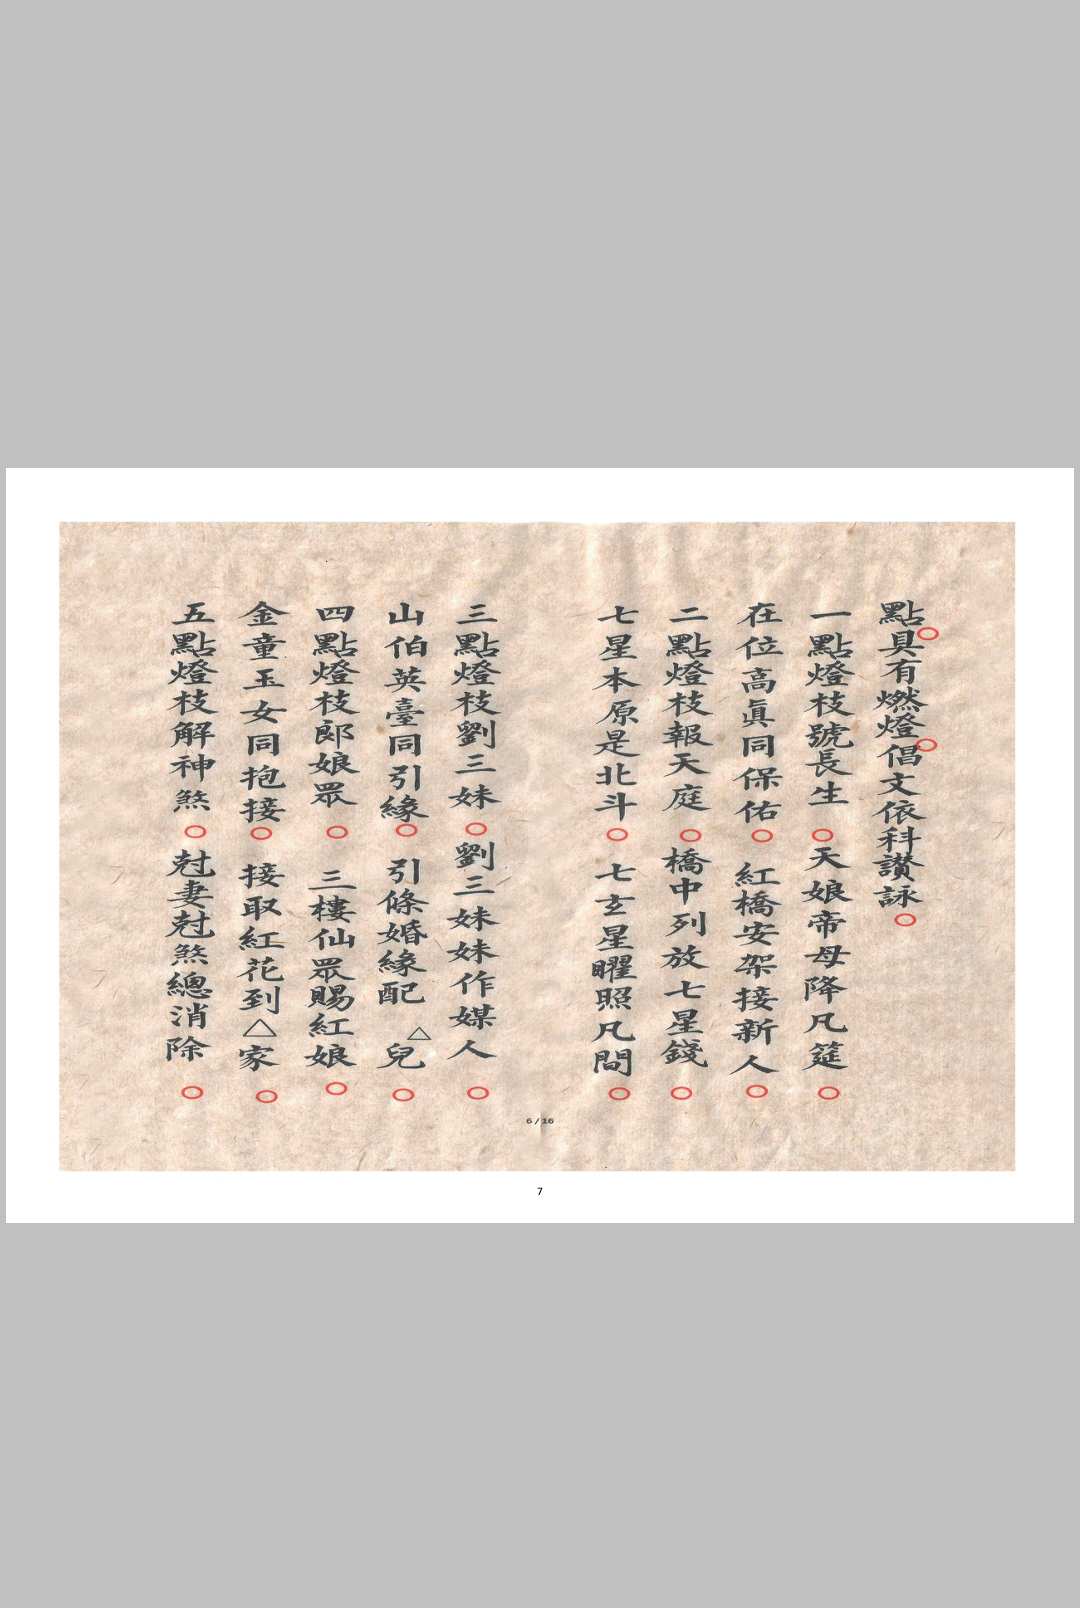 點具有燃燈倡文依科讚詠
一點燈枝號長生 天娘帝母降凡筵
在位高眞同保佑 紅橋安架接新人
二點燈枝報天庭 橋中列放七星錢
七星本原是北斗 七玄星曜照凡間
三點燈枝劉三妹 劉三妹妹作媒人
山伯英臺同引緣 引條婚緣配△兒
四點燈枝郎娘眾 三樓仙眾賜紅娘
金童玉女同抱接 接取紅花到△家
五點燈枝解神煞 尅妻尅煞總消除
6/16
7